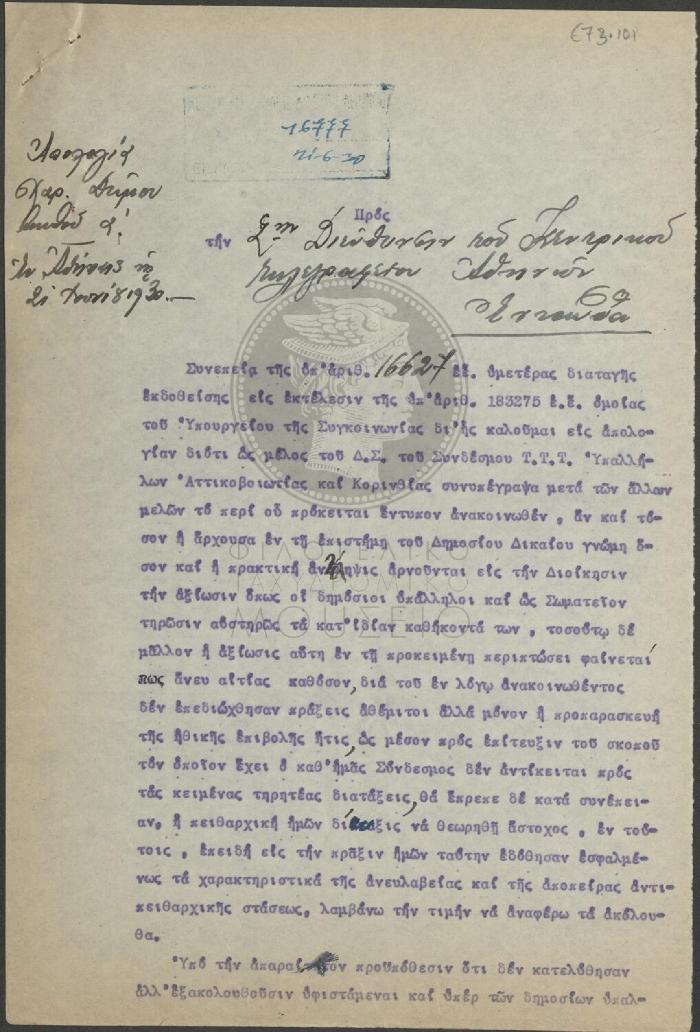 673.101
16777
21-6-30
Ἀπολογία
Χαρ. Δήμου
Ἐν Ἀθήναις τῇ
21 Ἰουνίου 1930.—
Πρός
τήν Σην Διεύθυνσιν τοῦ Κεντρικοῦ
Τηλεγραφείου Ἀθηνῶν
Ἐνταῦθα
Συνεπείᾳ τῆς ὑπ'ἀριθ. 16627 ἐ.ἔ. ὑμετέρας διαταγῆς
ἐκδοθείσης εἰς ἐκτέλεσιν τῆς ὑπ'ἀριθ. 183275 ἐ.ἔ. ὁμοίας
τοῦ Ὑπουργείου τῆς Συγκοινωνίας δι'ἧς καλοῦμαι εἰς ἀπολο-
γίαν διότι ὡς μέλος τοῦ Δ.Σ. τοῦ Συνδέσμου Τ.Τ.Τ. Ὑπαλλή-
λων Ἀττικοβοιωτίας καί Κορινθίας συνυπέγραψα μετά τῶν ἄλλων
μελῶν τό περί οὗ πρόκειται ἔντυπον ἀνακοινωθέν, ἄν καί τό-
σον ἡ ἄρχουσα ἐν τῇ ἐπιστήμῃ τοῦ Δημοσίου Δικαίου γνώμη ὅ-
σον καί ἡ πρακτική ἀντίληψις ἀρνοῦνται εἰς τήν Διοίκησιν
τήν ἀξίωσιν ὅπως οἱ δημόσιοι ὑπάλληλοι καί ὡς Σωματεῖον
τηρῶσιν αὐστηρῶς τά κατ'ἰδίαν καθήκοντά των, τοσούτῳ δέ
μᾶλλον ἡ ἀξίωσις αὕτη ἐν τῇ προκειμένῃ περιπτώσει φαίνεταί
πως ἄνευ αἰτίας καθόσον, διά τοῦ ἐν λόγῳ ἀνακοινωθέντος
δέν ἐπεδιώχθησαν πράξεις ἀθέμιτοι ἀλλά μόνον ἡ προπαρασκευή
τῆς ἠθικῆς ἐπιβολῆς ἥτις, ὡς μέσον πρός ἐπίτευξιν τοῦ σκοποῦ
τόν ὁποῖον ἔχει ὁ καθ'ἡμᾶς Σύνδεσμος δέν ἀντίκειται πρός
τάς κειμένας τηρητέας διατάξεις, θά ἔπρεπε δέ κατά συνέπει-
αν, ἡ πειθαρχική ἡμῶν δίωξις νά θεωρηθῇ ἄστοχος, ἐν τού-
τοις, ἐπειδή εἰς τήν πρᾶξιν ἡμῶν ταύτην ἐδόθησαν ἐσφαλμέ-
νως τά χαρακτηριστικά τῆς ἀνευλαβείας καί τῆς ἀποπείρας ἀντι-
πειθαρχικῆς στάσεως, λαμβάνω τήν τιμήν νά ἀναφέρω τά ἀκόλου-
θα.
Ὑπό τήν ἀπαραίτητον προϋπόθεσιν ὅτι δέν κατελύθησαν
ἀλλ'ἐξακολουθοῦσιν ὑφιστάμεναι καί ὑπέρ τῶν δημοσίων ὑπαλ-
ΦΙΛΟΤΕΛΙΚΟ
ΤΑΧΥΔΡΟΜΙΚΟ
ΜΟΥΣΕΙΟ